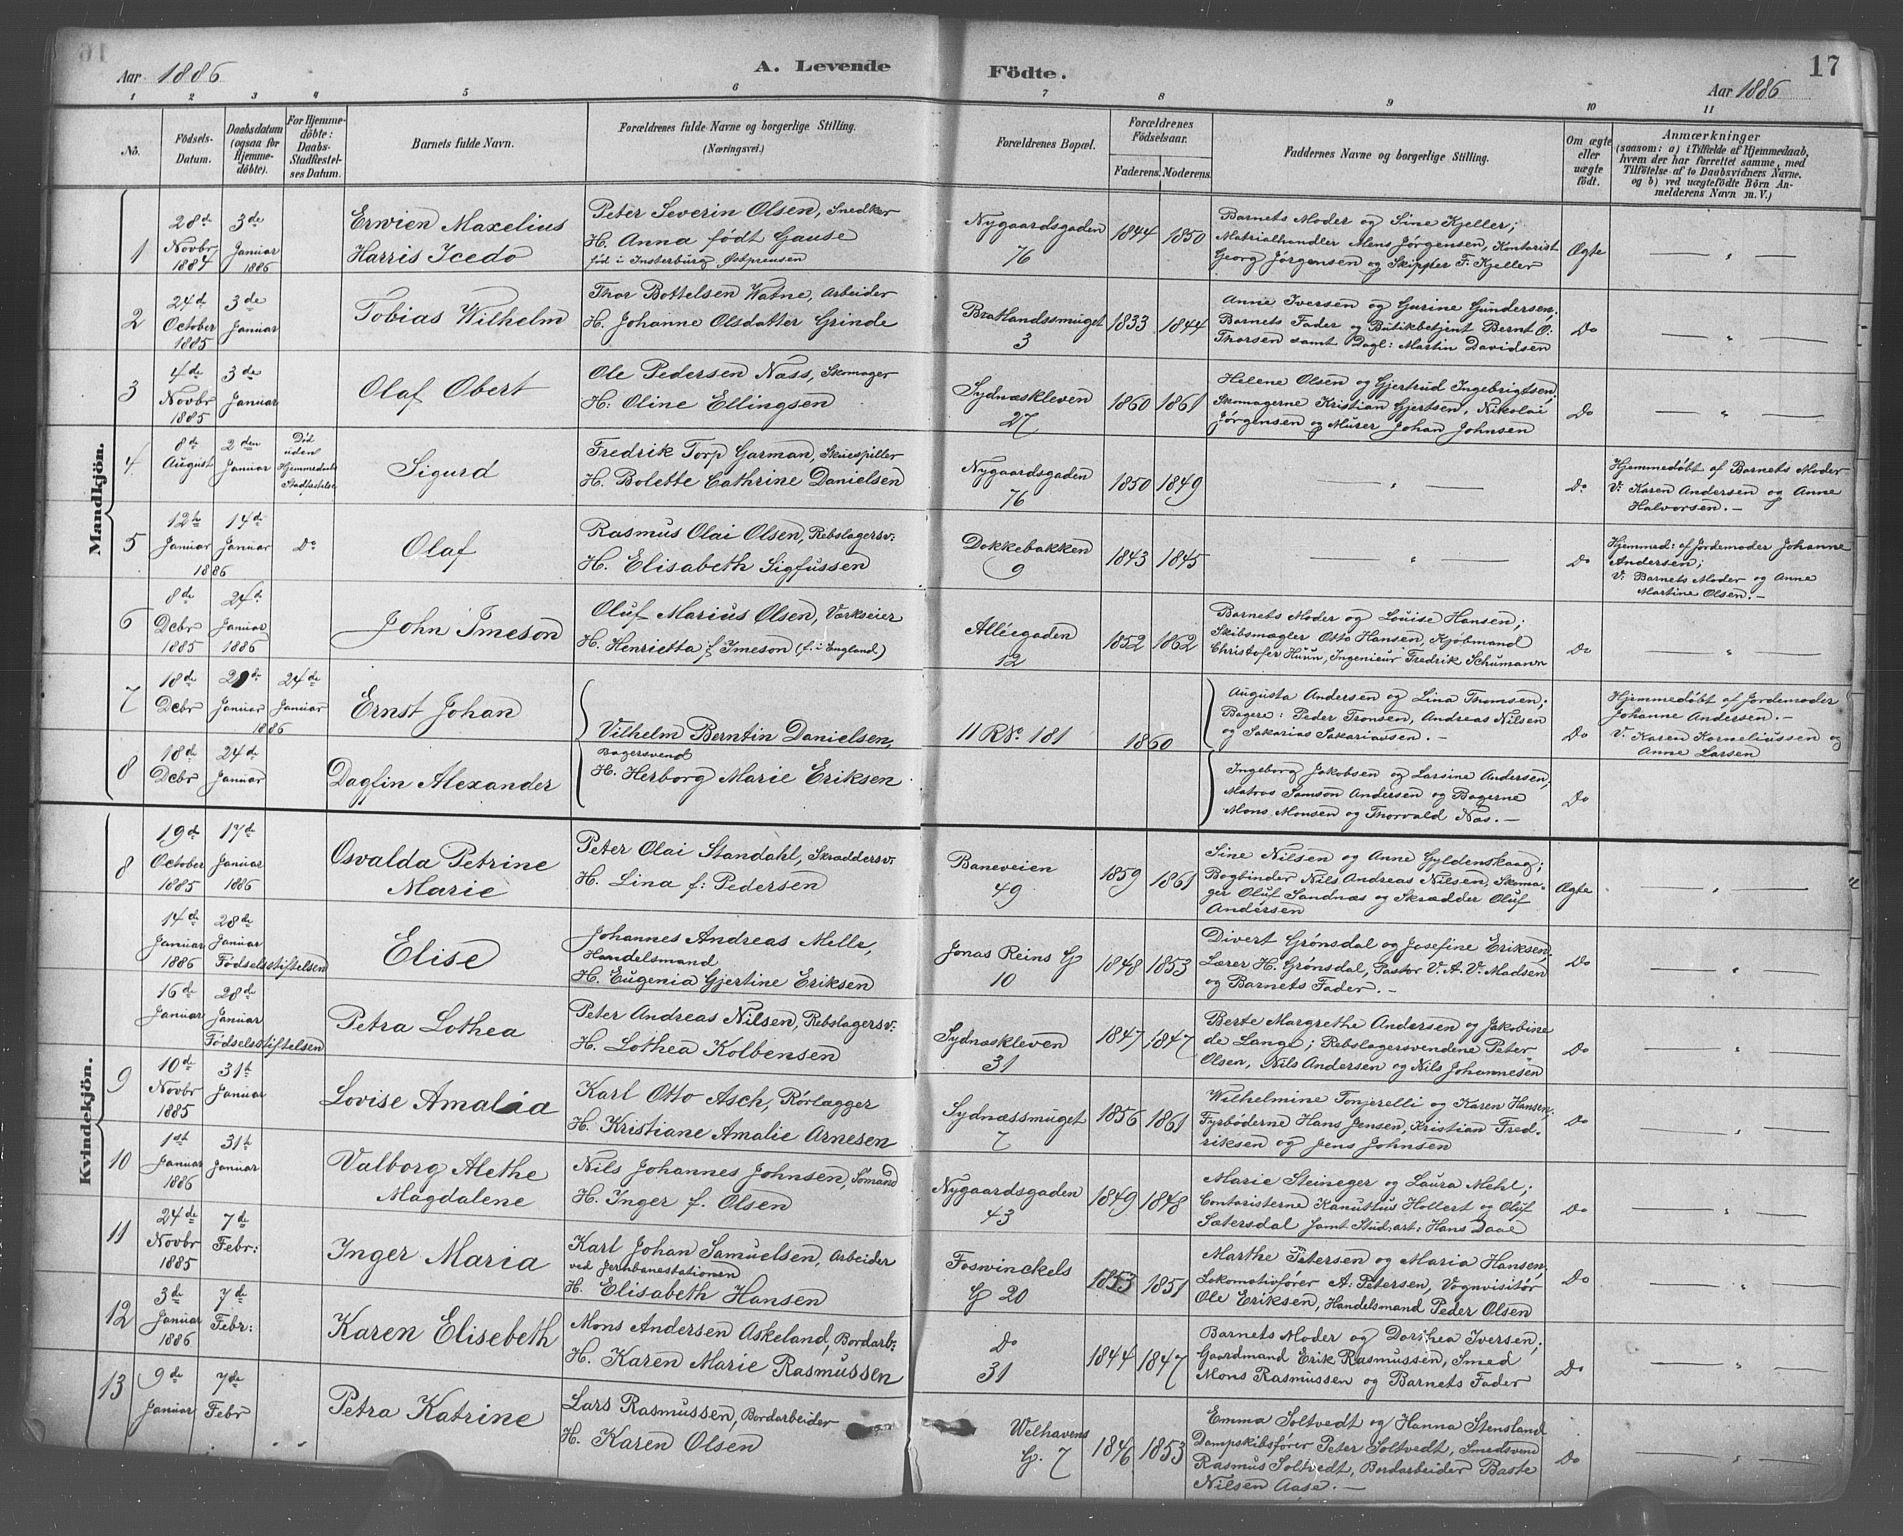 Aar 1886
A. Levende
Födte.
17
Aar 1886
1 2 3 4 5 6 7 8 9 10 11
No.
Födsels-
Datum.
Daabsdatum
(ogsaa for
Hjemme-
döbte).
For Hjemme-
döbte:
Daabs-
Stadfæstel-
ses Datum.
Barnets fulde Navn.
Forældrenes fulde Navne og borgerlige Stilling.
(Næringsvei.)
Forældrenes Bopæl.
Forældrenes
Födselsaar.
Faderens. Moderens.
Faddernes Navne og borgerlige Stilling.
Om ægte
eller
uægte
födt.
Anmærkninger
(saasom: a) i Tilfælde af Hjemmedaab,
hvem der har forrettet samme, med
Tilföielse af to Daabsvidners Navne.
og b) ved uægtefödte Börn An-
melderens Navn m. V.)
Mandkjön.
1
28de
Novbr
1884
3de
Januar
1886
Erwien Maxelius
Harris Icedo
Peter Severin Olsen, Snedker
H. Anna født Gause
fød i Insterburg Østpreusen
Nygaardsgaden
76
1844 1850
Barnets Moder og Sine Kjeller;
Matrialhandler Mons Jørgensen, Kontorist
Georg Jørgensen og Skipper F. Kjeller
Ægte
2
24d
October
1885
3de
Januar
Tobias Wilhelm
Thor Bottelsen Watne, Arbeider
H. Johanne Olsdatter Grinde
Bratlandssmuget
3
1833 1844
Anne Iversen og Gurine Gundersen.
Barnets Fader og Butikbetjent Bernt O:
Thorsen samt Dagl: Martin Davidsen
Do
3
4de
Novbr
1885
3de
Januar
Olaf Obert
Ole Pedersen Nass, Skomager
H: Oline Ellingsen
Sydnæskleven
27
1860 1861
Helene Olsen og Gjertrud Ingebrigtsen,
Skomagerne Kristian Gjertsen, Nikolai
Jørgensen og Murer Johan Johnsen
Do
4
8de
August
2den
Januar
Død
uden
Hjemmedaabs
Stadfæstelse
Sigurd
Fredrik Torp Garman, Skuespiller
H. Bolette Cathrine Danielsen
Nygaardsgaden
76
1850 1849
Do
Hjemmedøbt af Barnets Moder
V: Karen Andersen og Anne
Halvorsen. —
5
12te
Januar
14de
Januar
1886
Do
Olaf
Rasmus Olai Olsen, Rebslagersv:
H. Elisabeth Sigfussen
Dokkebakken
9
1843 1845
Do
Hjemmed: af Jordemoder Johanne
Andersen;
V: Barnets Moder og Anne
Martine Olsen. —
6
8de
Decbr
1885
24de
Januar
1886
John Imeson
Oluf Marius Olsen, Værkseier
H. Henrietta f. Imeson (f. i England)
Alléegaden
12
1852 1862
Barnets Moder og Louise Hansen;
Skibsmægler Otto Hansen, Kjøbmand
Christofer Huun, Ingenieur Fredrik Schumann
Do
7
18de
Decbr
Januar
1886
24de
Januar
Ernst Johan
Vilhelm Berntin Danielsen,
Bagersvend
H. Herborg Marie Eriksen
11 R No 181
1860
Augusta Andersen og Lina Thomsen;
Bagere: Peder Tronsen, Andreas Nilsen
og Sakarias Sakariassen. —
Do
Hjemmedøbt af Jordemoder
Johanne Andersen. —
V: Karen Korneliussen og
Anne Larsen
8
18de
Decbr
24de
Januar
Dagfin Alexander
Ingeborg Jakobsen og Larsine Andersen,
Matros Samson Andersen og Bagerne
Mons Monsen og Thorvald Næs. —
Do
Kvindekjön.
8
19de
October
1885
17de
Januar
1886
Osvalda Petrine
Marie
Peter Olai Standahl, Skræddersv:
H. Lina f: Pedersen
Baneveien
49
1859 1861
Sine Nilsen og Anne Gyldenskaag;
Bogbinder Nils Andreas Nilsen, Skoma-
ger Oluf Sandnæs og Skrædder Oluf
Andersen
Ægte
14de
Januar
1886
28de
Januar
Fødselsstiftelsen
Elise
Johannes Andreas Melle,
Handelsmand
H. Eugenia Gjertine Eriksen
Jonas Reins G
10
1848 1853
Divert Grønsdal og Josefine Eriksen,
Lærer H. Grønsdal, Pastor V. A. V. Madsen
og Barnets Fader. —
Do
16de
Januar
28de
Januar
Fødselsstiftelsen
Petra Lothea
Peter Andreas Nilsen, Rebslagersv:
H. Lothea Kolbensen
Sydnæskleven
31
1847 1847
Berte Margrethe Andersen og Jakobine
de Lange; Rebslagersvendene Peter
Olsen, Nils Andersen og Nils Johannesen
Do
9
10de
Novbr
1885
31te
Januar
Lovise Amalia
Karl Otto Asch, Rørlægger
H. Kristiane Amalie Arnesen
Sydnæssmuget
7
1856 1861
Wilhelmine Tonjerelli og Karen Hansen;
Fyrbøderne Hans Jensen, Kristian Fred-
riksen og Jens Johnsen
Do
10
1ste
Januar
1886
31te
Januar
Valborg Alethe
Magdalene
Nils Johannes Johnsen, Sømand
H. Inger f. Olsen
Nygaardsgaden
43
1849 1848
Marie Steineger og Laura Mehl;
Contoristerne Kanuttus Hollert og Oluf
Sætersdal samt Stud. art: Hans Daae
Do
11
24de
Novbr
1885
7de
Febr:
Inger Maria
Karl Johan Samuelsen, Arbeider
ved Jernbanestationen
H. Elisabeth Hansen
Foswinckels
G 20
1853 1851
Marthe Petersen og Maria Hansen,
Lokomotivfører A: Petersen, Vognvisitør
Ole Eriksen, Handelsmand Peder Olsen
Do
12
3de
Januar
1886
7de
Febr:
Karen Elisebeth
Mons Andersen Askeland, Bordarb:
H. Karen Marie Rasmussen
Do
31
1844 1847
Barnets Moder og Dorthea Iversen;
Gaardmand Erik Rasmussen, Smed
Mons Rasmussen og Barnets Fader
Do
13
9de
Januar
7de
Febr
Petra Katrine
Lars Rasmussen, Bordarbeider
H. Karen Olsen
Welhavens
G. 7
1846 1853
Emma Soltvedt og Hanna Stensland
Dampskibsfører Peter Soltvedt, Smedsvend
Rasmus Soltvedt, Bordarbeider Baste
Nilsen Aase. —
Do